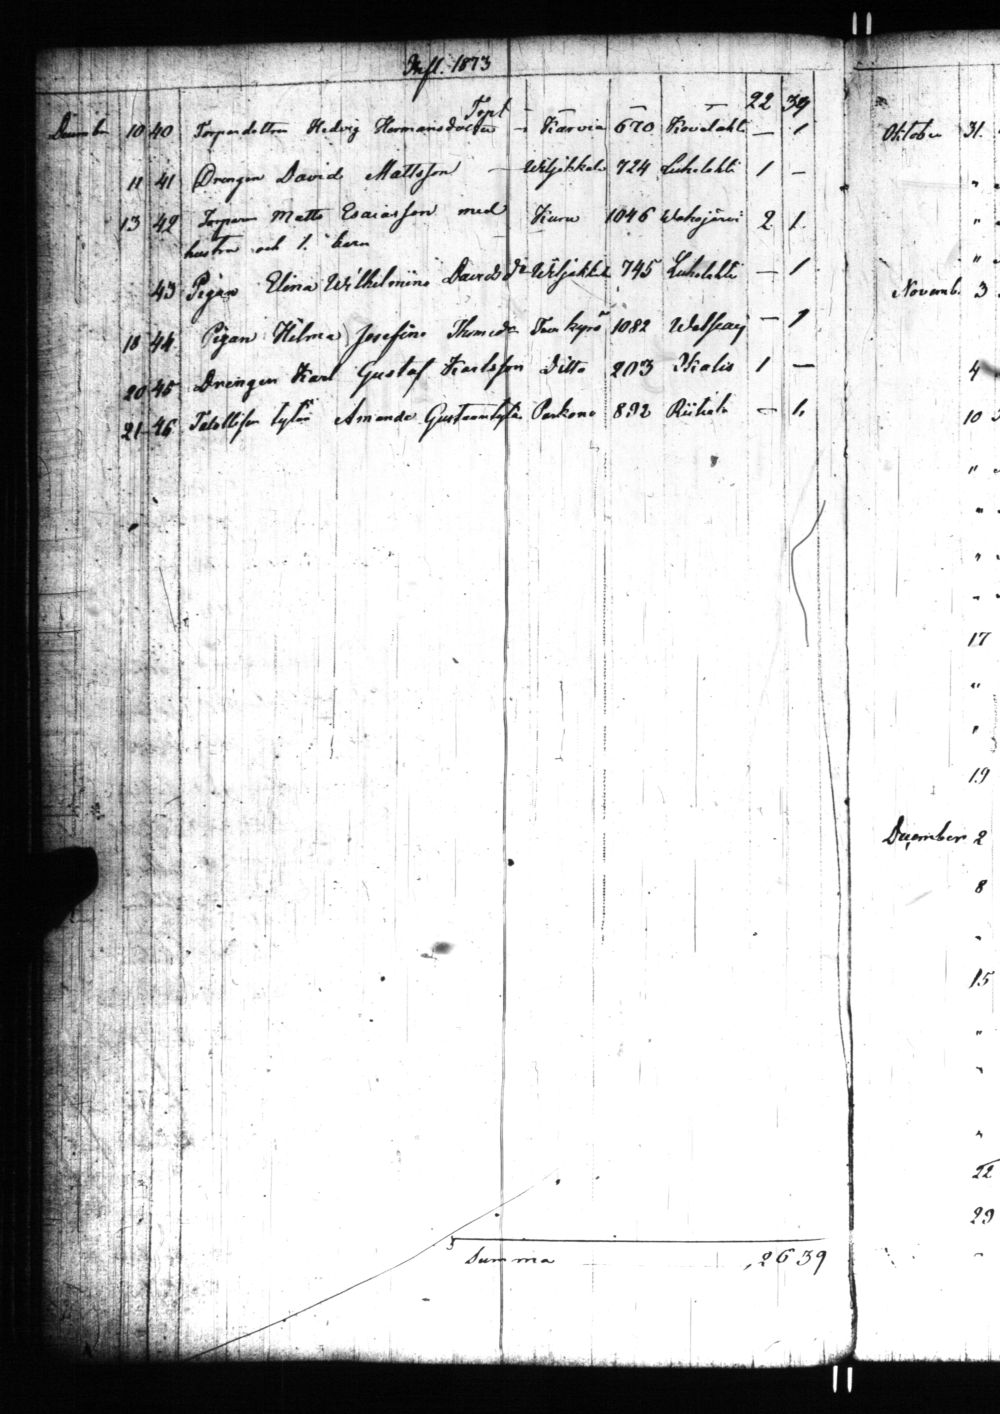 Infl. 1873
Tpt — — — 22 39
Decemb 10 40 Torparedottren Hedvig Hermansdotter — Karvia 670 Kovelahti — 1
11 41 Drengen David Mattsson — Wiljakkala 724 Luhalahti 1 —
13 42 Torparen Matts Esaiasson med Kuru 1046 Wahojärvi 2 1.
hustru och 1. barn
43 Pigan Elina Wilhelmina Davids dr Wiljakkala 745 Luhalahti — 1
18 44 Pigan Hilma Josefina Thomasdr Tavkyrö 1082 — 1
20 45 Drengen Karl Gustaf Karlsson ditto 203 Ikalis 1 —
21 46 Talollisen tytär Amanda Gustaantytär Parkano 892 Riitiala — 1.
Summa 26 39
Oktober 31.
"
"
"
Novemb. 3
4
10
"
"
"
"
17
"
"
19
December 2
8
"
15
"
"
"
22
29
"